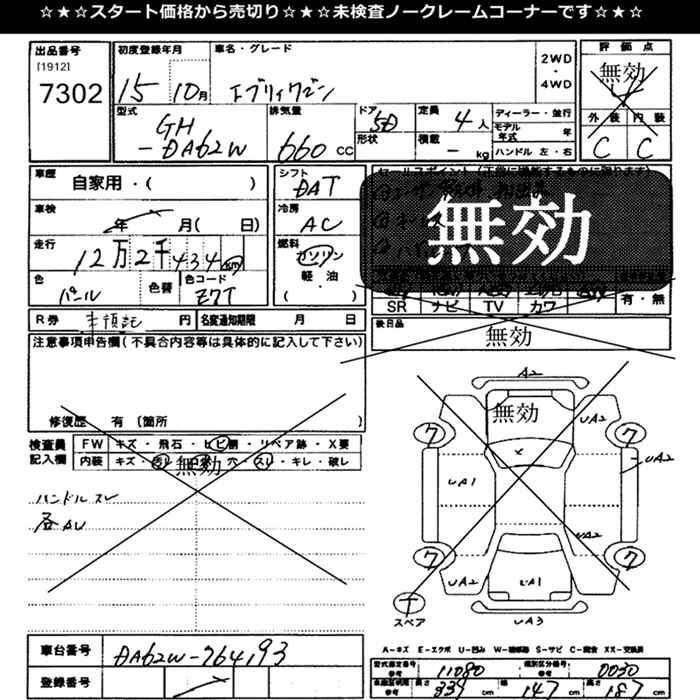 ☆★☆スタート価格から売切り☆★☆未検査ノークレームコーナーです☆★☆
出品番号
[1912]
7302
初度登録年月
15 10月
車名・グレード
エブリィワゴン
2WD
・
4WD
評価点
無効
4
外装 内装
C C
型式
GH
-DA62W
排気量
660 cc
ドア
5D
形状
定員
4人
積載
- kg
ディーラー・並行
モデル
年式 年
ハンドル 左・右
車歴
自家用・( )
車検
年 月( 日)
走行
12万2千434km
色
パール
色替
色コード
Z7T
シフト
DAT
冷房
AC
燃料
ガソリン
軽・油
( )
無効
SR ナビ TV カワ
有・無
後日品
無効
R券
未預託 円
名変通知期限 月 日
注意事項申告欄(不具合内容等は具体的に記入して下さい)
修復歴 有 〔箇所 〕
検査員
記入欄
FW キズ・飛石・ヒビ割・リペア跡・X要
内装 キズ・ ・ ・穴・スレ・キレ・破レ
無効
ハンドルスレ
各AU
A2
無効
UA2
7 7
UA1
UA2
UA2
7 7
UA2
UA1
UA3
スペア
車台番号
DA62W-764193
登録番号
A-キズ E-エクボ U-凹み W-補修跡 S-サビ C-腐食 XX-交換済
型式指定番号
参考
11080
類別区分番号
参考
0030
長さ 339 cm
幅 147 cm
高さ 187 cm